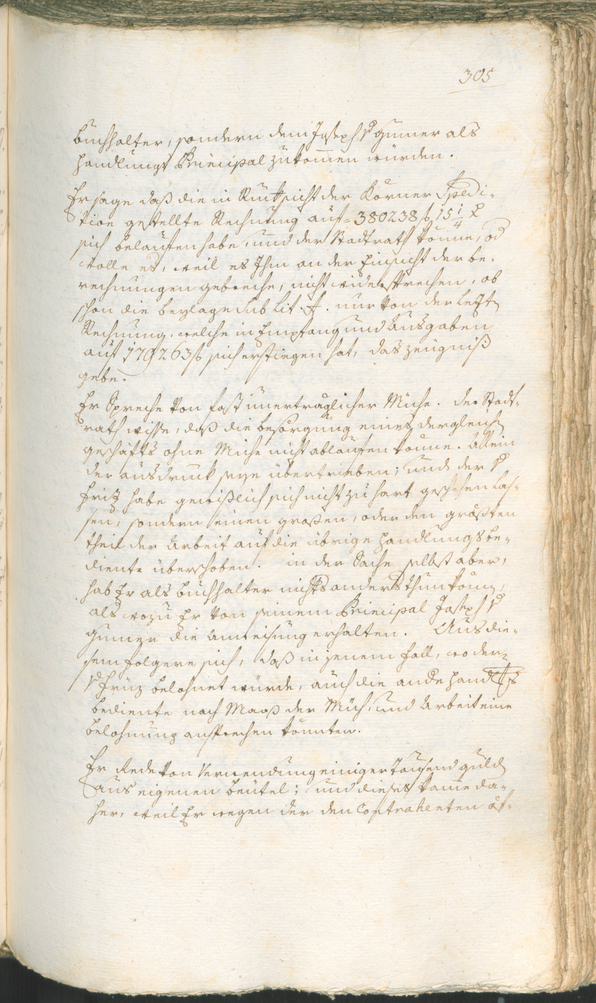 305
Buchhalter, sondern dem Joseph v Gumer als
Handlungs Principal zukommen würden.
Er sage daß die in Rüksicht der Körner Spedi-
tion gestellte Rechnung auf 380238 f 15 1/4 x
sich beloffen habe, und der Stadtrath könne, od
wolle es, weil es Ihm an der Einsicht der be-
rechnungen gebreche, nicht widersprechen, ob
schon die beylage sub Lit. F. nur von der letzt
Rechnung, welche in Empfang und Ausgaben
auf 179263 f sich erstiegen hat, das zeugniß
gebe.
Er Spreche von fast unerträglicher Mühe. der Stadt-
rath wisse, daß die besorgung eines dergleich
geschäfts ohne Mühe nicht ablaufen könne. Allein
der ausdruck seye übertrieben; und der v
Fritz habe gewißlich sich nicht zu hart geschehen las-
sen, sondern einen großen, oder den größten
theil der Arbeit auf die übrige Handlungsbe-
diente überschoben. in der Sache selbst aber,
hab Er als Buchhalter nichts anders thun könn,
als wozu Er von seinem Principal Joseph v
Gumer die anweisung erhalten. Aus die-
sem folgere sich, daß in jenem fall, wo der
v Fritz belohnet würde, auch die ande Handlgs
bediente nach Maaß der Müh, und Arbeit eine
belohnung ansprechen könnten.
Er Rede von Verwendung einiger Tausend guld
aus eigenen beutel; und dieses kame da-
her, weil Er wegen der den Contrahenten